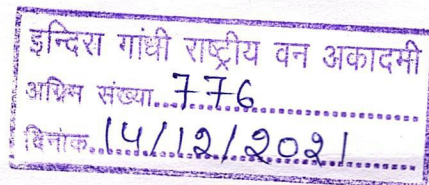 इन्दिरा गांधी राष्ट्रीय वन अकादमी
अग्रिम संख्या...776...
दिनांक...14/12/2021...